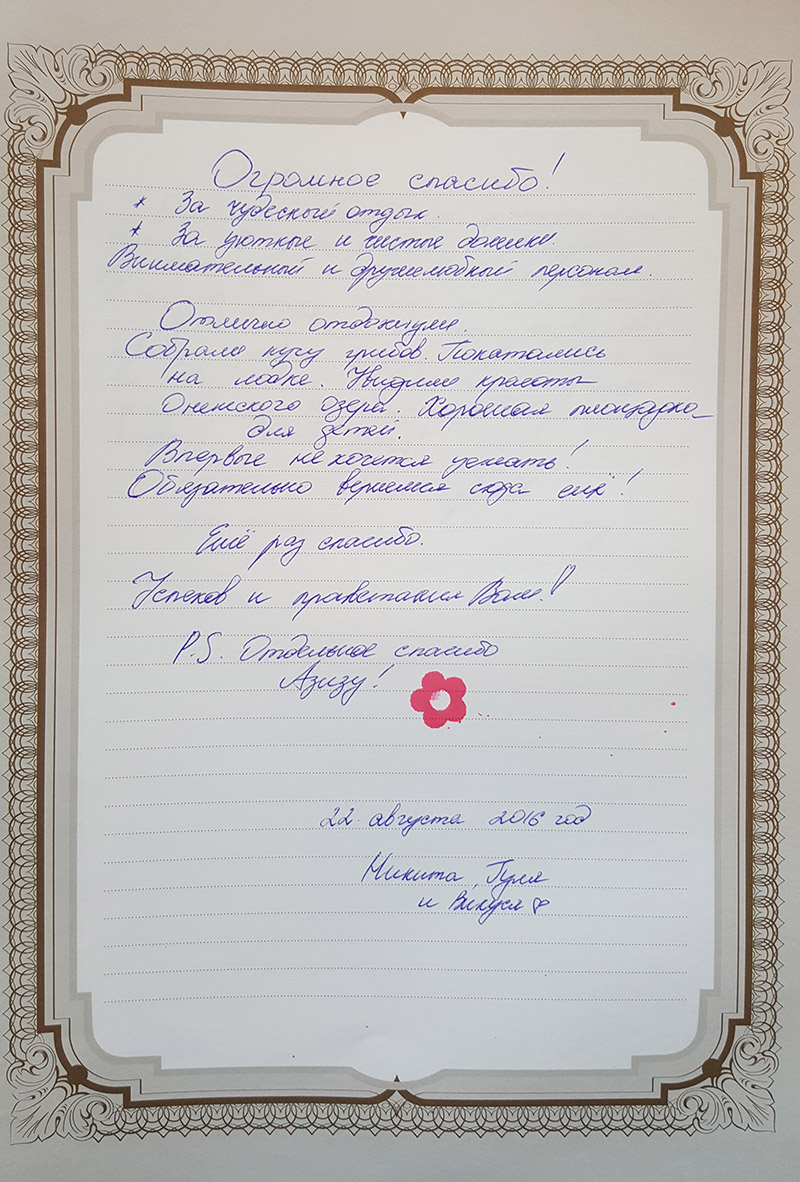 Огромное спасибо!
* За чудесный отдых.
* За уютные и чистые домики.
Внимательный и дружелюбный персонал.
Отлично отдохнули.
Собрали кучу грибов. Покатались
на лодке. Увидели красоты
Онежского озера. Хорошая площадка
для детей.
Впервые не хочется уезжать!
Обязательно вернемся сюда ещё!
Ещё раз спасибо.
Успехов и процветания Вам!
P.S. Отдельное спасибо
Азизу!
22 августа 2016 год
Никита, Гуля
и Викуся